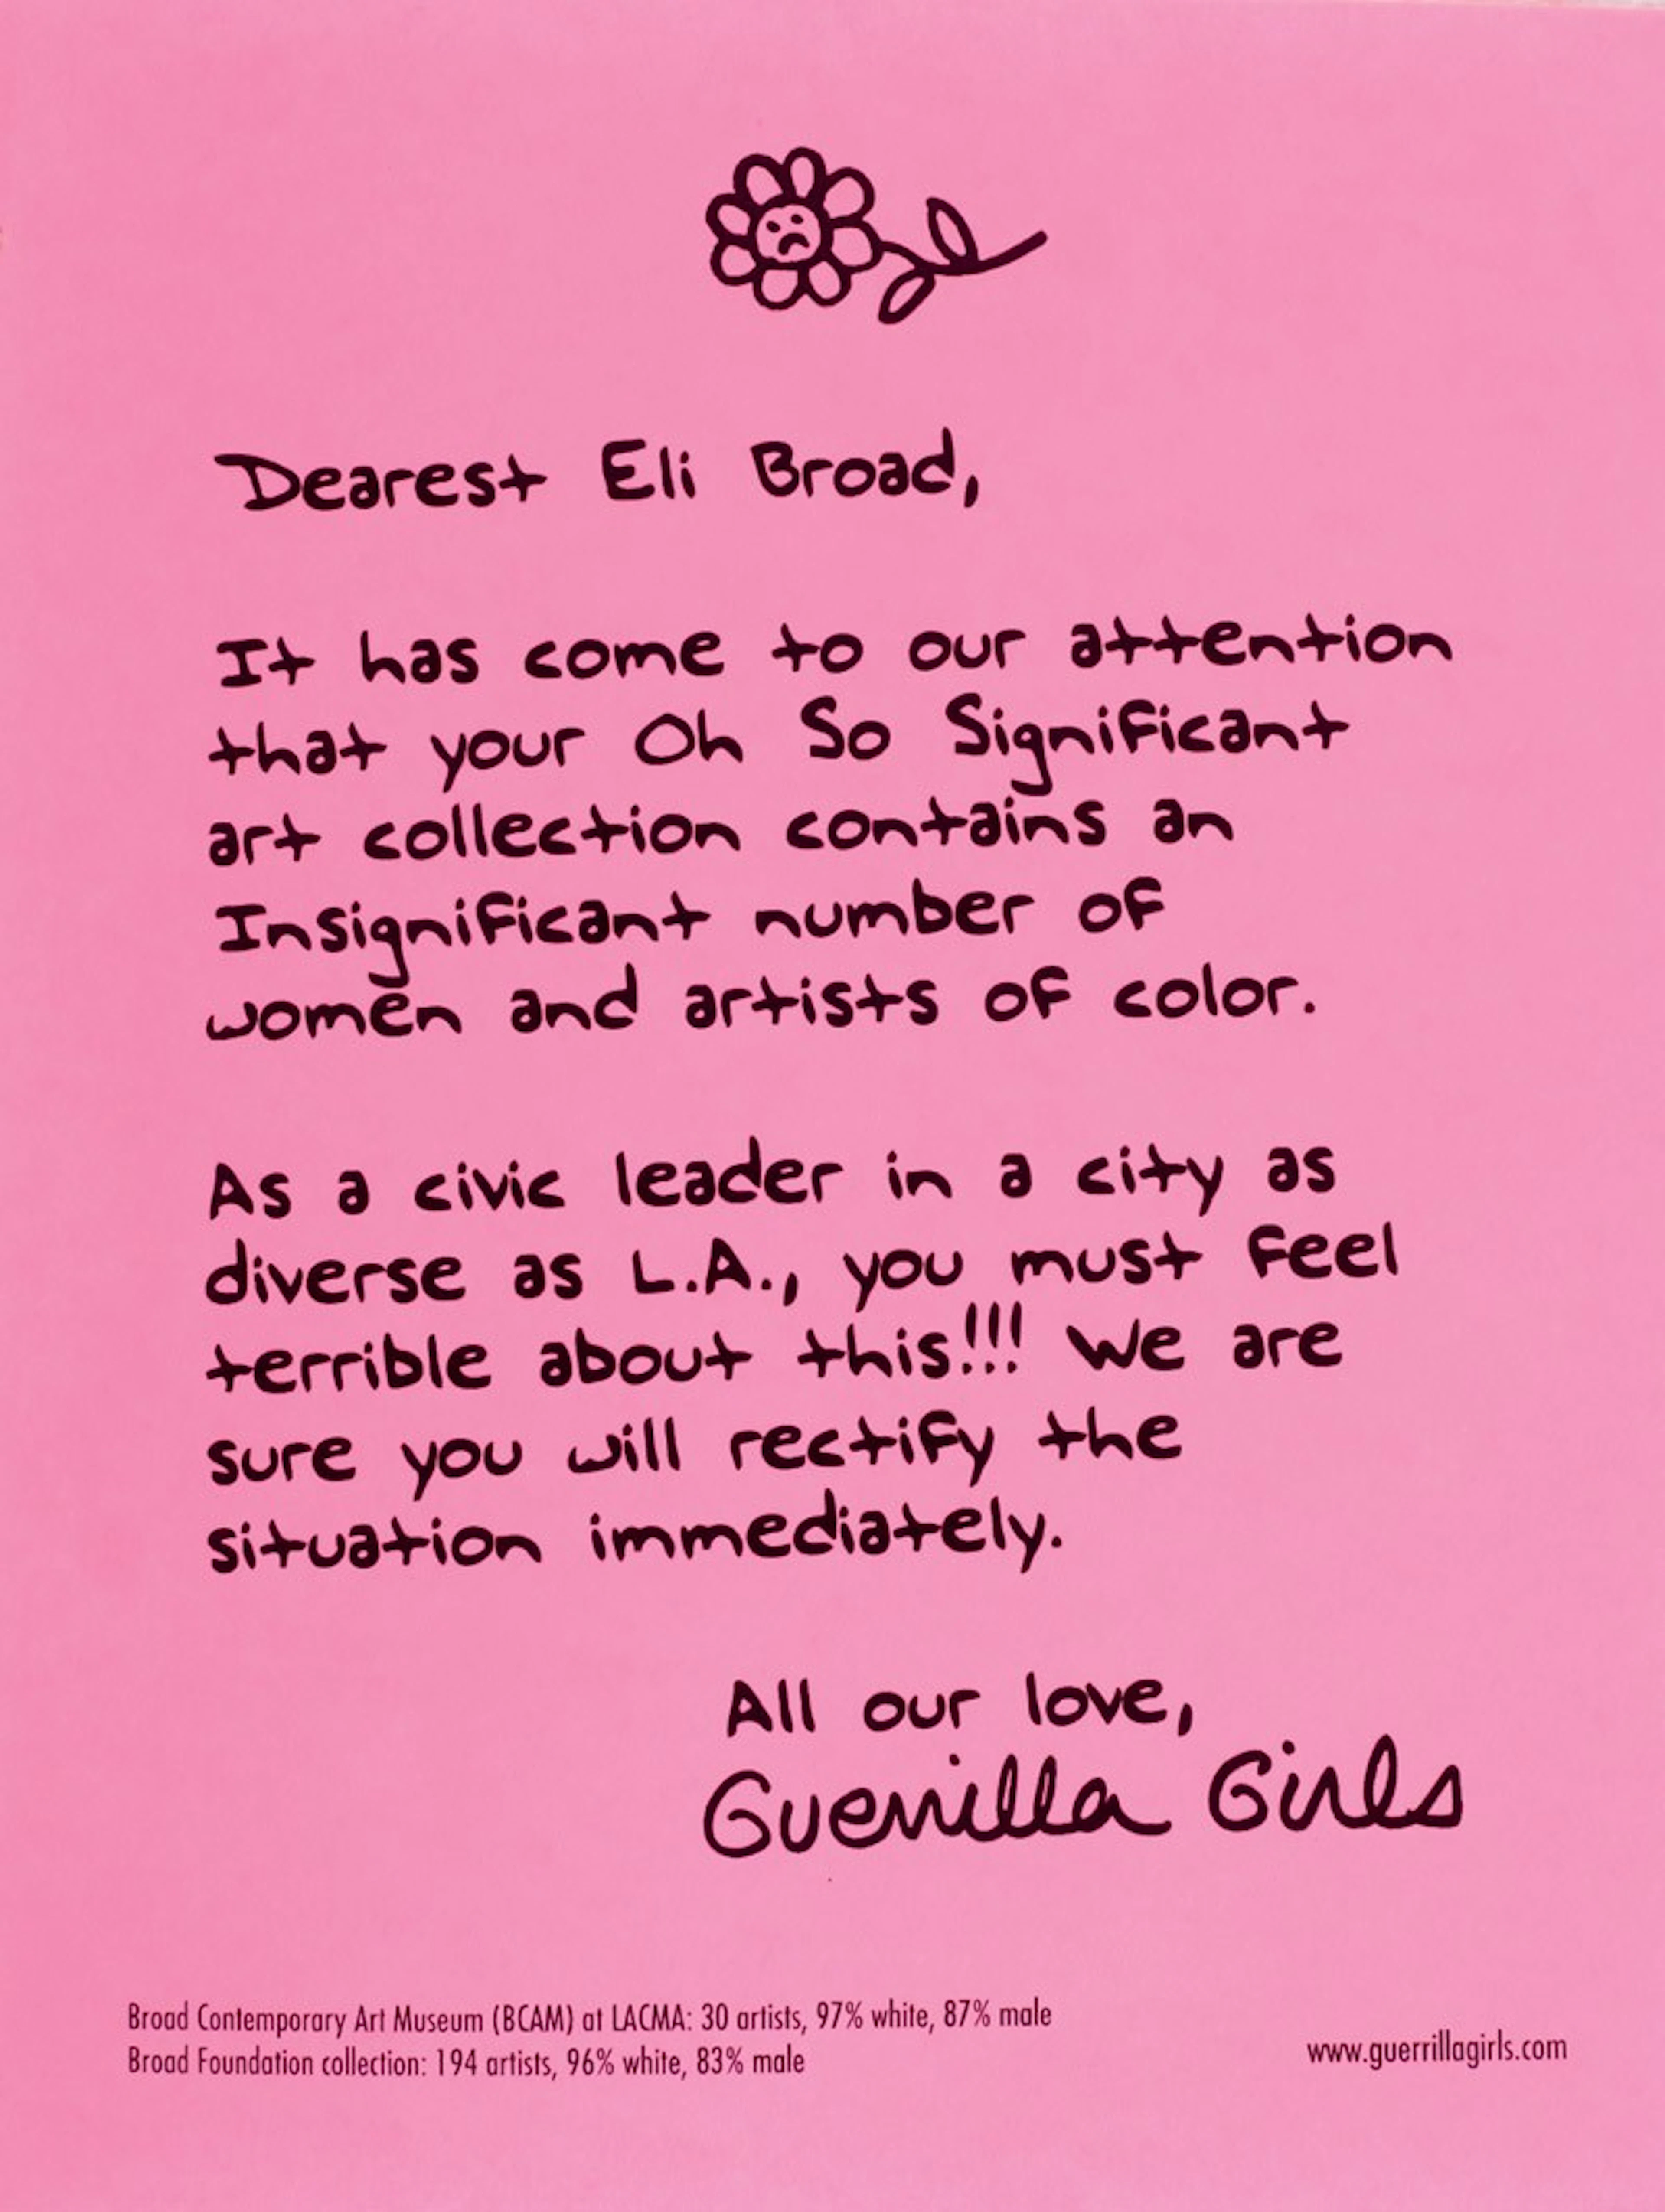 Dearest Eli Broad,
It has come to our attention
that your Oh So Significant
art collection contains an
Insignificant number of
women and artists of color.
As a civic leader in a city as
diverse as L.A., you must feel
terrible about this!!! We are
sure you will rectify the
situation immediately.
All our love,
Guerrilla Girls
Broad Contemporary Art Museum (BCAM) at LACMA: 30 artists, 97% white, 87% male
Broad Foundation collection: 194 artists, 96% white, 83% male
www.guerrillagirls.com